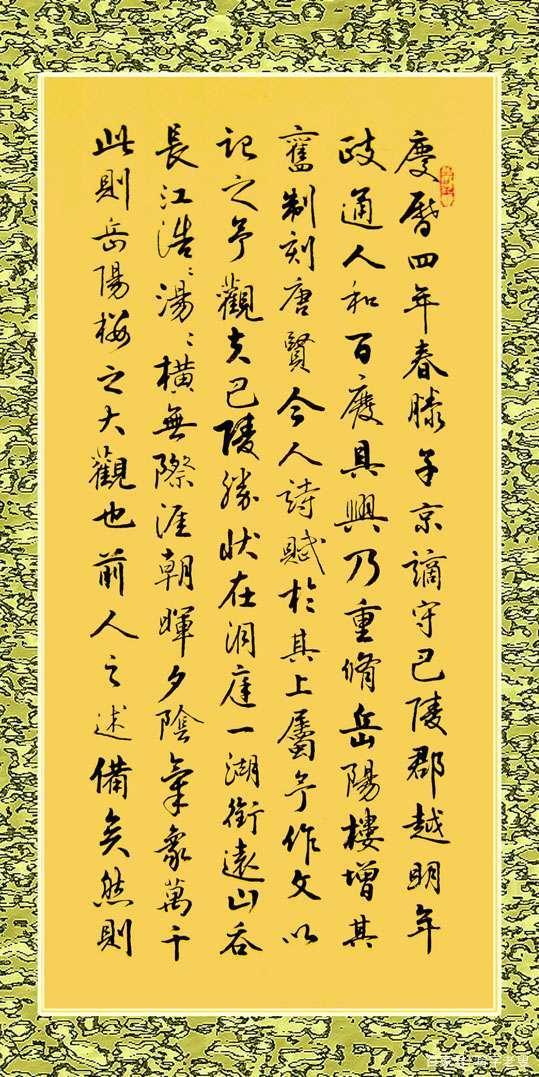 慶曆四年春滕子京謫守巴陵郡越明年
政通人和百廢具興乃重脩岳陽樓增其
舊制刻唐賢今人詩賦於其上屬予作文以
記之予觀夫巴陵勝狀在洞庭一湖銜遠山吞
長江浩〻湯〻橫無際涯朝暉夕陰氣象萬千
此則岳陽樓之大觀也前人之述備矣然則